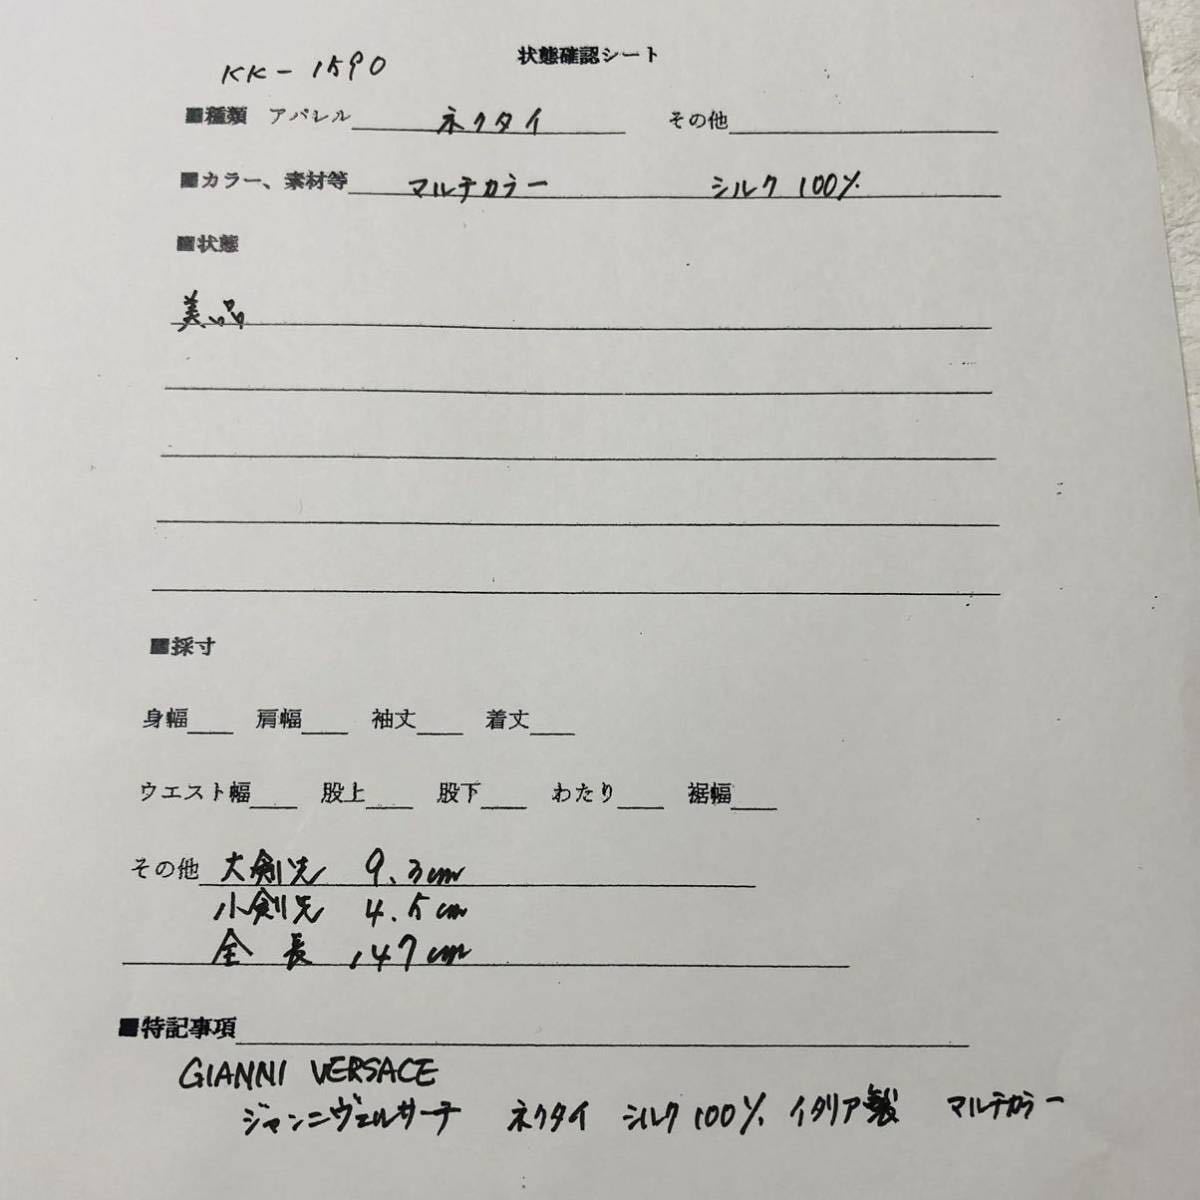 状態確認シート
KK-1590
■種類 アパレル ネクタイ その他
■カラー、素材等 マルチカラー シルク 100%
■状態
美品
■採寸
身幅 肩幅 袖丈 着丈
ウエスト幅 股上 股下 わたり 裾幅
その他 大剣先 9.3cm
小剣先 4.5cm
全長 147cm
■特記事項
GIANNI VERSACE
ジャンニヴェルサーチ ネクタイ シルク100% イタリア製 マルチカラー